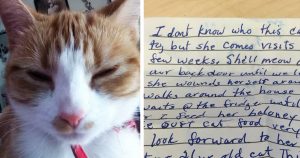 I don't know who this ca
ty but she comes visits
few weeks. She'll meow a
our back door until we l
she wounds herself aroun
walks around the house
waits @ the fridge until
r feed her baloney
OUR cat food very
look forward to her
old cat Th